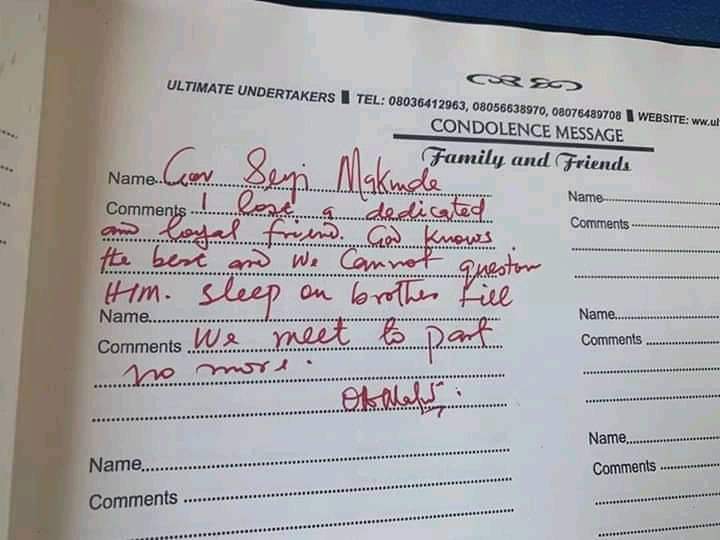 ULTIMATE UNDERTAKERS TEL: 08036412963, 08056638970, 08076489708 WEBSITE: ww.ul
CONDOLENCE MESSAGE
Family and Friends
Name Gov Seyi Makinde
Comments I lose a dedicated
and loyal friend. God knows
the best and We Cannot question
HIM. Sleep on brother till
Name
Comments We meet to part
no more.
Name
Comments
Name
Comments
Name
Comments
Name
Comments